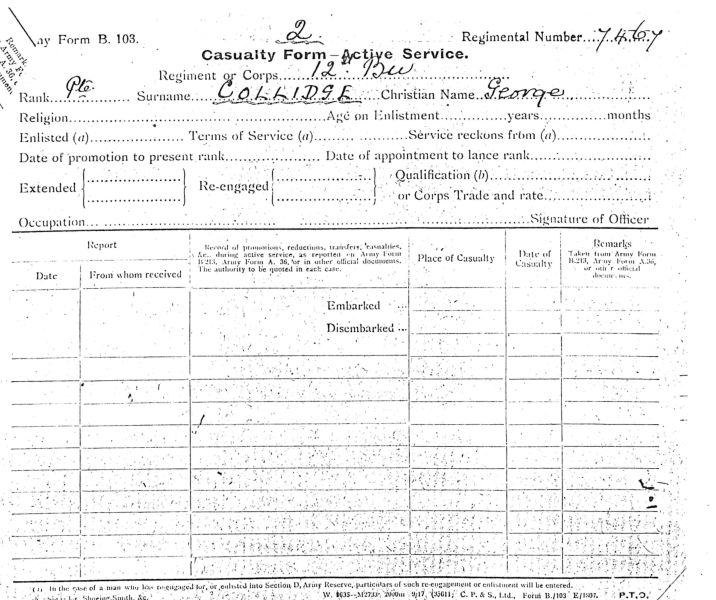 2
ny Form B. 103. Regimental Number 7467
Casualty Form—Active Service.
Regiment or Corps 12th Bn
Rank Pte. Surname COLLIDGE Christian Name George
Religion Age on Enlistment years months
Enlisted (a) Terms of Service (a) Service reckons from (a)
Date of promotion to present rank Date of appointment to lance rank
Extended Re-engaged Qualification (b)
or Corps Trade and rate
Occupation Signature of Officer
Report
Date
From whom received
Record of promotions, reductions, transfers, casualties,
&c., during active service, as reported on Army Form
B.213, Army Form A. 36, or in other official documents.
The authority to be quoted in each case.
Place of Casualty
Date of
Casualty
Remarks
Taken from Army Form
B.213, Army Form A.36,
or other official
documents.
Embarked
Disembarked
In the case of a man who has re-engaged for, or enlisted into Section D, Army Reserve, particulars of such re-engagement or enlistment will be entered.
Shoeing Smith, &c. C. P. & S., Ltd., Form B./103 P.T.O.